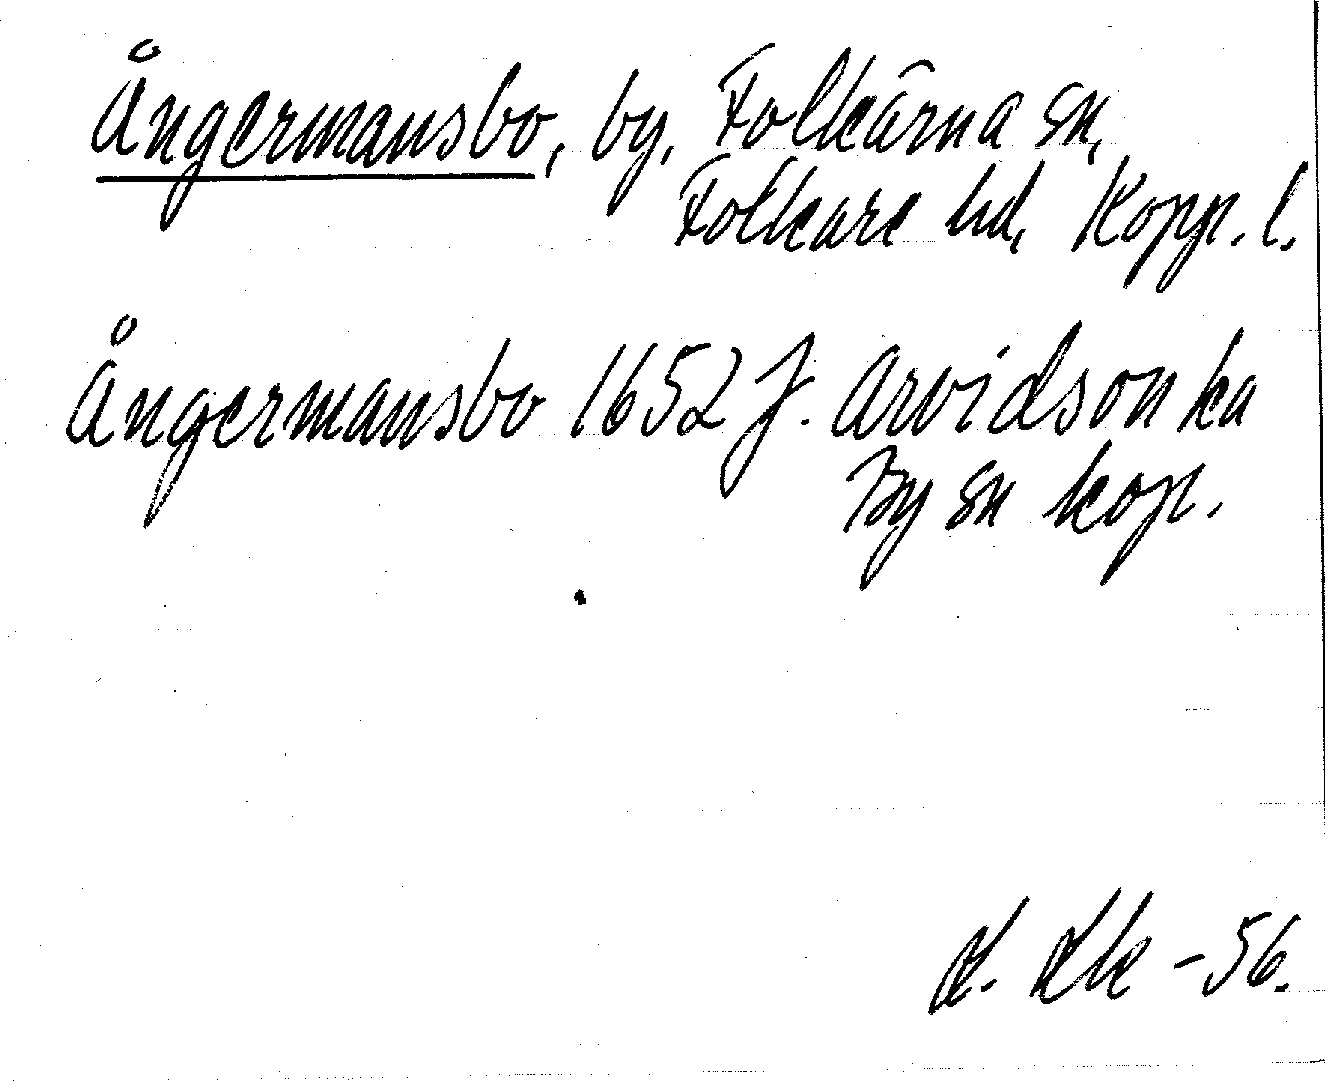 Ångermansbo, by, Folkärna sn,
Folkare hd, Kopp. l.
Ångermansbo 1652 J. Arvidson ka
By sn kop.
-56.